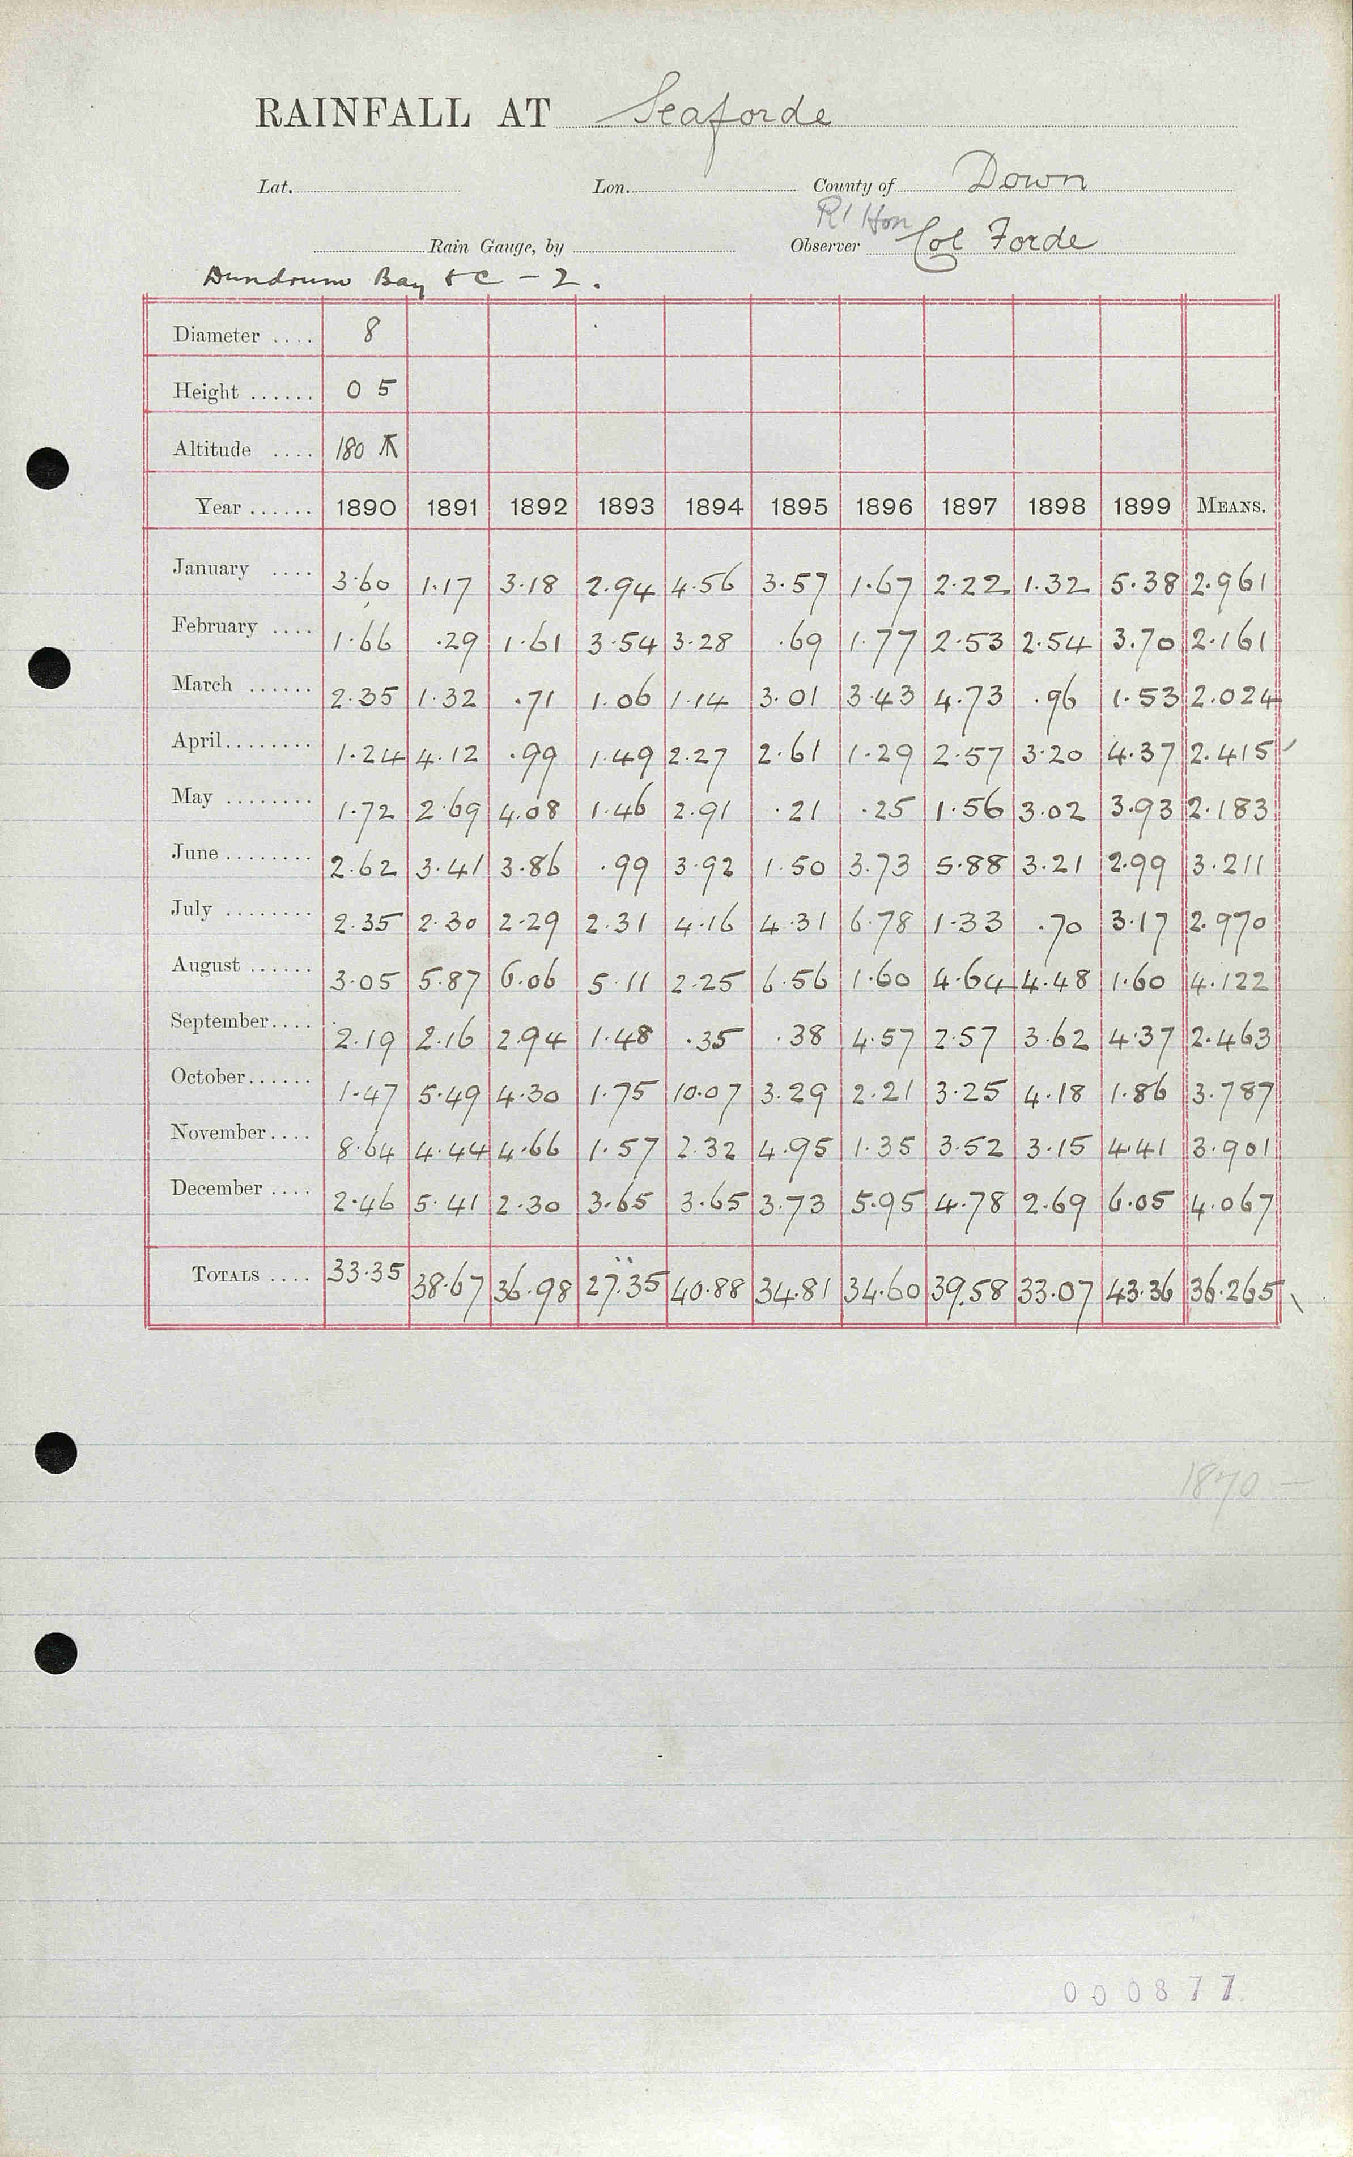 RAINFALL AT Seaforde
Lat. Lon. County of Down
Rt Hon
Rain Gauge, by Observer Col Forde
Dundrum Bay &c - 2.
Diameter .... 8
Height ...... 0 5
Altitude .... 180
Year ...... 1890 1891 1892 1893 1894 1895 1896 1897 1898 1899 MEANS.
January .... 3.60 1.17 3.18 2.94 4.56 3.57 1.67 2.22 1.32 5.38 2.961
February .... 1.66 .29 1.61 3.54 3.28 .69 1.77 2.53 2.54 3.70 2.161
March ...... 2.35 1.32 .71 1.06 1.14 3.01 3.43 4.73 .96 1.53 2.024
April........ 1.24 4.12 .99 1.49 2.27 2.61 1.29 2.57 3.20 4.37 2.415
May ........ 1.72 2.69 4.08 1.46 2.91 .21 .25 1.56 3.02 3.93 2.183
June ........ 2.62 3.41 3.86 .99 3.92 1.50 3.73 5.88 3.21 2.99 3.211
July ........ 2.35 2.30 2.29 2.31 4.16 4.31 6.78 1.33 .70 3.17 2.970
August ...... 3.05 5.87 6.06 5.11 2.25 6.56 1.60 4.64 4.48 1.60 4.122
September.... 2.19 2.16 2.94 1.48 .35 .38 4.57 2.57 3.62 4.37 2.463
October...... 1.47 5.49 4.30 1.75 10.07 3.29 2.21 3.25 4.18 1.86 3.787
November.... 8.64 4.44 4.66 1.57 2.32 4.95 1.35 3.52 3.15 4.41 3.901
December .... 2.46 5.41 2.30 3.65 3.65 3.73 5.95 4.78 2.69 6.05 4.067
TOTALS .... 33.35 38.67 36.98 27.35 40.88 34.81 34.60 39.58 33.07 43.36 36.265
1870 -
000877